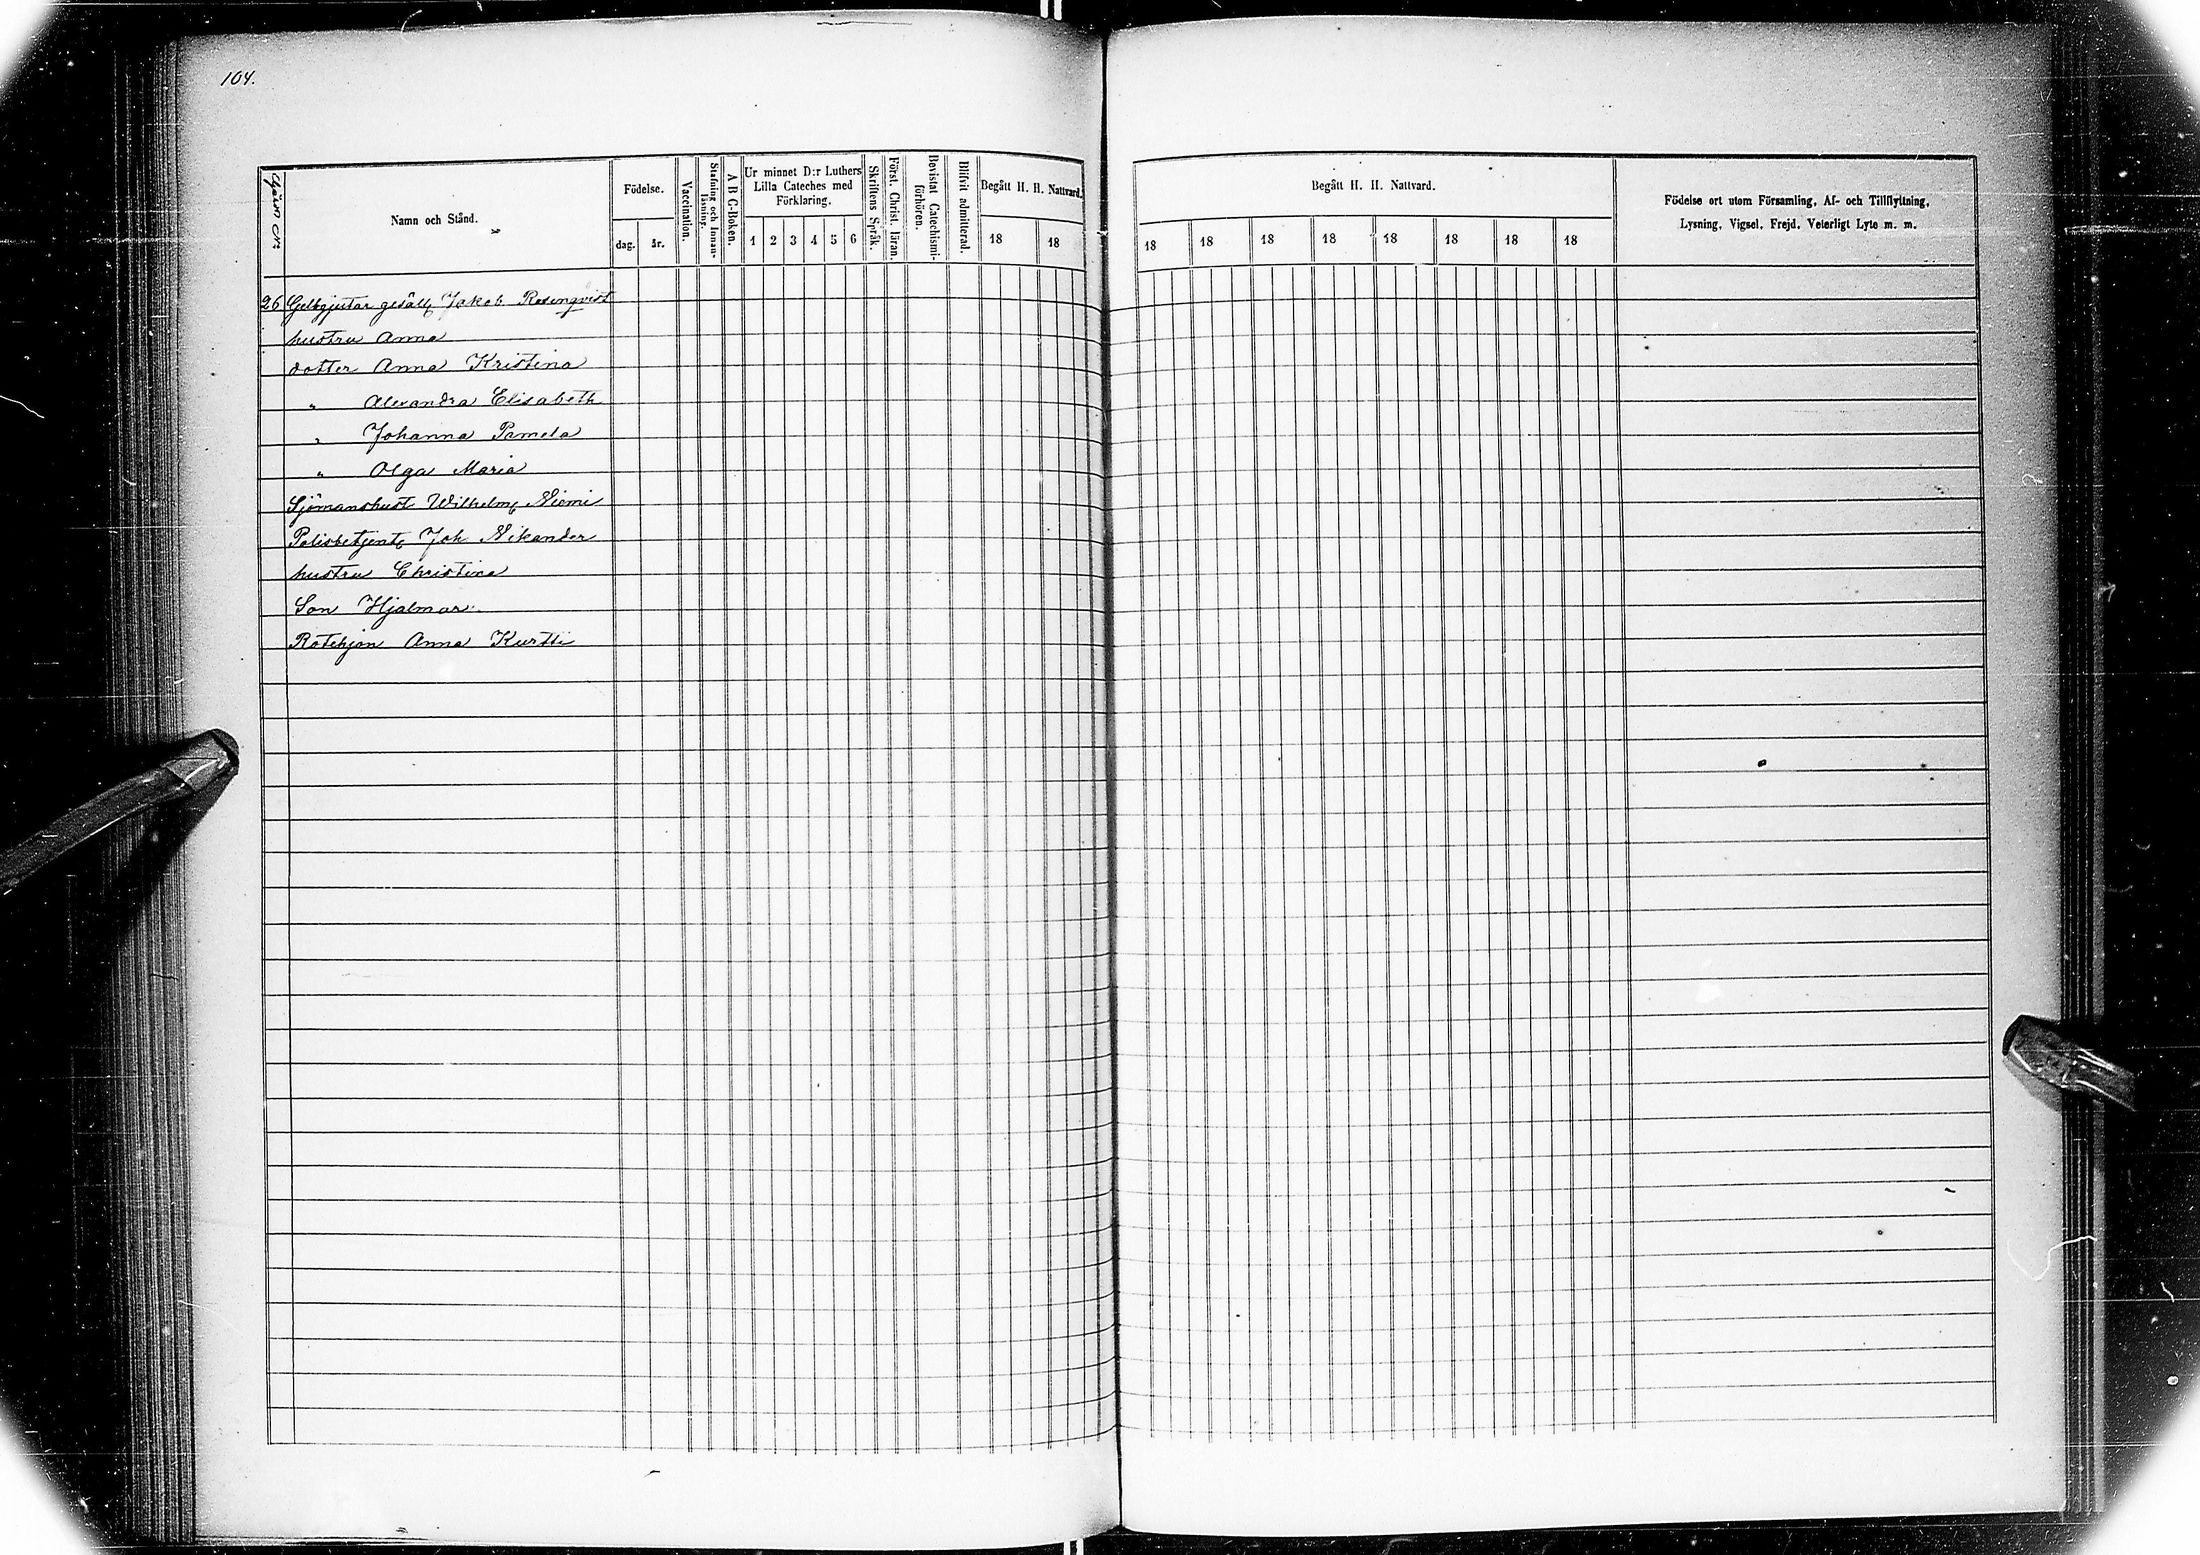 104.
Gårds №
Namn och Stånd.
Födelse.
dag. år.
Vaccination.
Stafning och Innanläsning.
A B C-Boken.
Ur minnet D:r Luthers
Lilla Cateches med
Förklaring.
1 2 3 4 5 6
Skriftens Språk.
Först. Christ. läran.
Bevistat Catechismi-
förhören.
Blifvit admitterad.
Begått H. H. Nattvard.
18 18
Begått H. H. Nattvard.
18 18 18 18 18 18 18 18
Födelse ort utom Församling, Af- och Tillflyttning,
Lysning, Vigsel, Frejd, Veterligt Lyte m. m.
26 Gelbgjutar gesäll Jakob Rosenqvist
hustru Anna
dotter Anna Kristina
" Alexandra Elisabeth
" Johanna Pamela
" Olga Maria
Sjömanshust Wilhelm Niemi
Polisbetjent Joh Nikander
hustru Christina
Son Hjalmar
Rotehjon Anna Kurtti